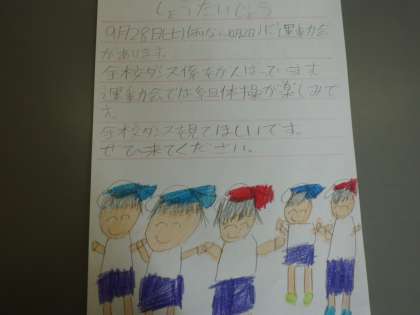 しょうたいじょう
9月28日(土)
運動会
があります。
全校ダンス係をがんばっています
運動会では組体操が楽しみで
す。
全校ダンスを見てほしいです。
ぜひ来てください。